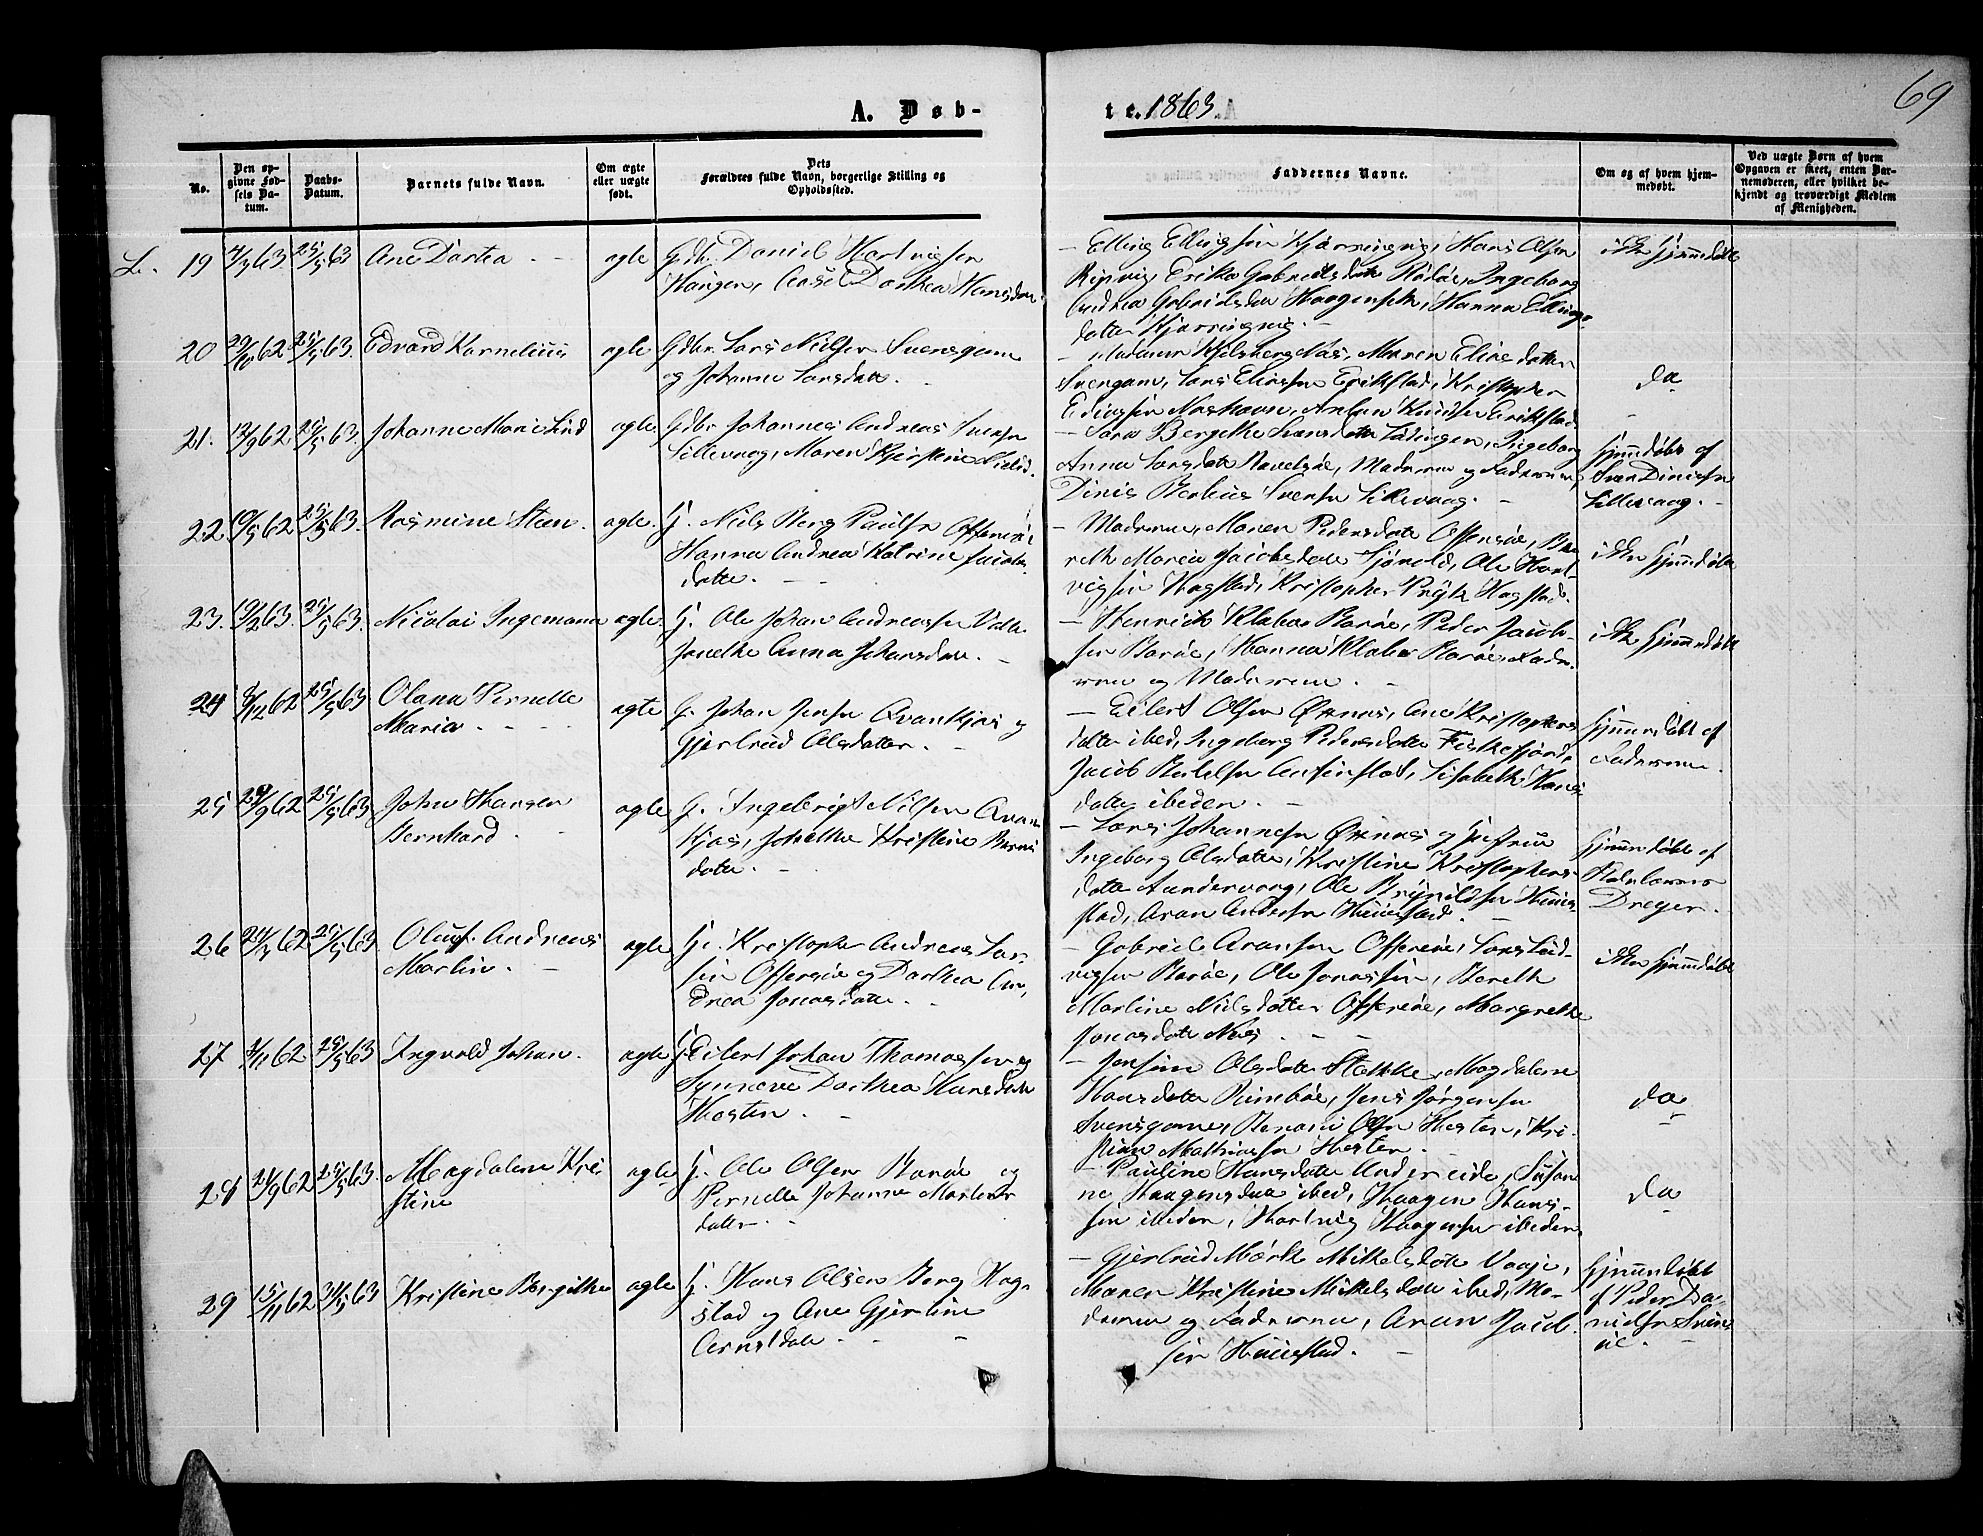 69
A. Døb-
te. 1863.
No.
Den op-
givne Fød-
sels Da-
tum.
Daabs-
Datum.
Barnets fulde Navn.
Om ægte
eller uægte
født.
Dets
Forældres fulde Navn, borgerlige Stilling og
Opholdssted.
Faddernes Navne.
Om og af hvem hjem-
medøbt.
Ved uægte Børn af hvem
Opgaven er skeet, enten Bar-
nemoderen, eller hvilket be-
kjendt og troværdigt Medlem
af Menigheden.
L. 19 4/3 63 25/5 63 Ane Dortea ægte Gdbr. Daniel Hartvigsen
Haugen, Aase Dorthea Hansdatter
Elling Ellingsen Kjærringvig, Hans Olsen
Ripvig, Erika Gabrielsdatter Rødøe, Ingeborg
Andrea Gabrielsdatter Haagensæth, Hanna Ellings-
datter Kjærringvig.
ikke hjemmedøbt
20 62 25/5 63. Edvard Kornelius ægte Gdbr. Lars Nielsen Svensgam
og Johanne Larsdatter.
Madame Kjilsberg Næs, Maren Eliæ datter
Svensgam, Lars Eliassen Erikstad, Kristopher
Eriksstad
do
21. 13/9 62 25/5 63. Johanne Marie Lind ægte Gdbr Johannes Andreas Svensen
Lillevaag, Maren Kjerstine Nielsd.
Sara Bergethe Svensdatter Lødingen, Ingeborg
Anna Larsdatter, Moderen og Faderen,
Dinis Berlius Svensen Lillevaag.
hjemmedøbt af
Sven Dinissen
Lillevaag.
22. 62 25/5 63. Rasmine Steen. ægte. G. Niels Berg Paulsen Offersøe
Hanna Andrea Katrine Jacobs-
datter.
Moderen, Maren Pedersdatter Offersøe, Be-
reth Maria Jacobsdatter Fjørvold, Ole Hart-
vigsen Hagstad, Kristopher Prytz Hagstad.
ikke hjemmedøbt
23. 19/2 63. 25/5 63. Nicolai Ingemann ægte. G. Ole Johan Andreassen Valle
Janethe Anna Johansdatter.
Henrik Klæboe Barøe, Peder Jacob-
sen Barøe, Hanna Klæboe Barøe, Fade-
ren og Moderen.
ikke hjemmedøbt
24 3/12 62 25/5 63 Olana Pernelle
Maria
ægte G. Johan Jensen Qvankjos og
Gjertrud Olsdatter.
Eilert Olsen Ørnæs, Ane Kristophers
datter ibed, Ingeborg Pedersdatter Fiskefjord,
Jacob Bertelsen, Lisabeth Hans
datter ibeden.
hjemmedøbt af
Faderen.
25 62 25/5 63 John Hansen
Bernhard.
ægte G. Ingebrigt Nilsen Qvan
kjos, Johelle Kristine Bernt
datter.
Lars Johannesen Ørnæs og Hustrue
Ingeborg Olsdatter, Kristine Kristophers-
datter Sandervaag, Ole Brynildsen Huus-
stad, Aron Andersen Huusstad.
hjemmedøbt af
Skolelærer
Dreyer.
26 62 25/5 63. Oluf Andreas
Martin.
ægte G. Kristopher Andreas Lar-
sen Offersøe og Dorthea An-
drea Jonasdatter.
Gabriel Aronsen Offersøe, Lars Lud-
vigsen Barøe, Ole Jonassen, Bereth
Martine Nielsdatter Offersøe, Margrethe
Jonasdatter Næs.
ikke hjemmedøbt
27 1/11 62 25/5 63 Ingvald Johan. ægte G. Eilert Johan Thomassen og
Synneve Dorthea Hansdatter
Hesten.
Jensine Olsdatter Stokke, Magdalene
Hansdatter Rinbøe, Jens Jørgensen
Svensgam, Benoni Olsen Hesten, Kri-
stian Mathiassen Hesten.
do
28 21/9 62 25/5 63. Magdalene Kri
stine
ægte G. Ole Olsen Barøe og
Pernella Johanna Martens
datter.
Pauline Hansdatter Undereide, Susan-
na Haagensdatter ibed, Haagen Hans-
sen ibeden, Hartvig Haagensen ibeden
do
29 15/11 62 31/5 63 Kristine Bergithe ægte G. Hans Olsen Berg Hag-
stad og Ane Gjertine
Arntsdatter.
Gjertrud Mørk Mikkelsdatter Vaage,
Maren Kristine Mikkelsdatter ibed, Mo-
deren og Faderen, Aron Jacob-
sen Huusstad.
hjemmedøbt
af Peder Da-
nielsen